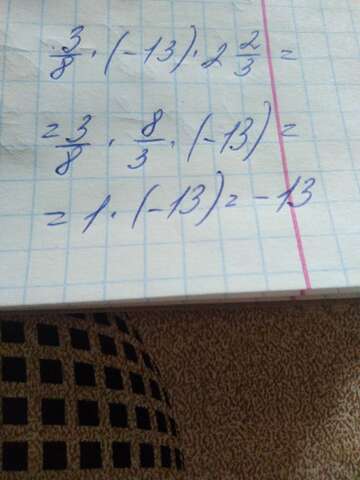 3/8 · (-13) · 2 2/3 =
= 3/8 · 8/3 · (-13) =
= 1 · (-13) = -13